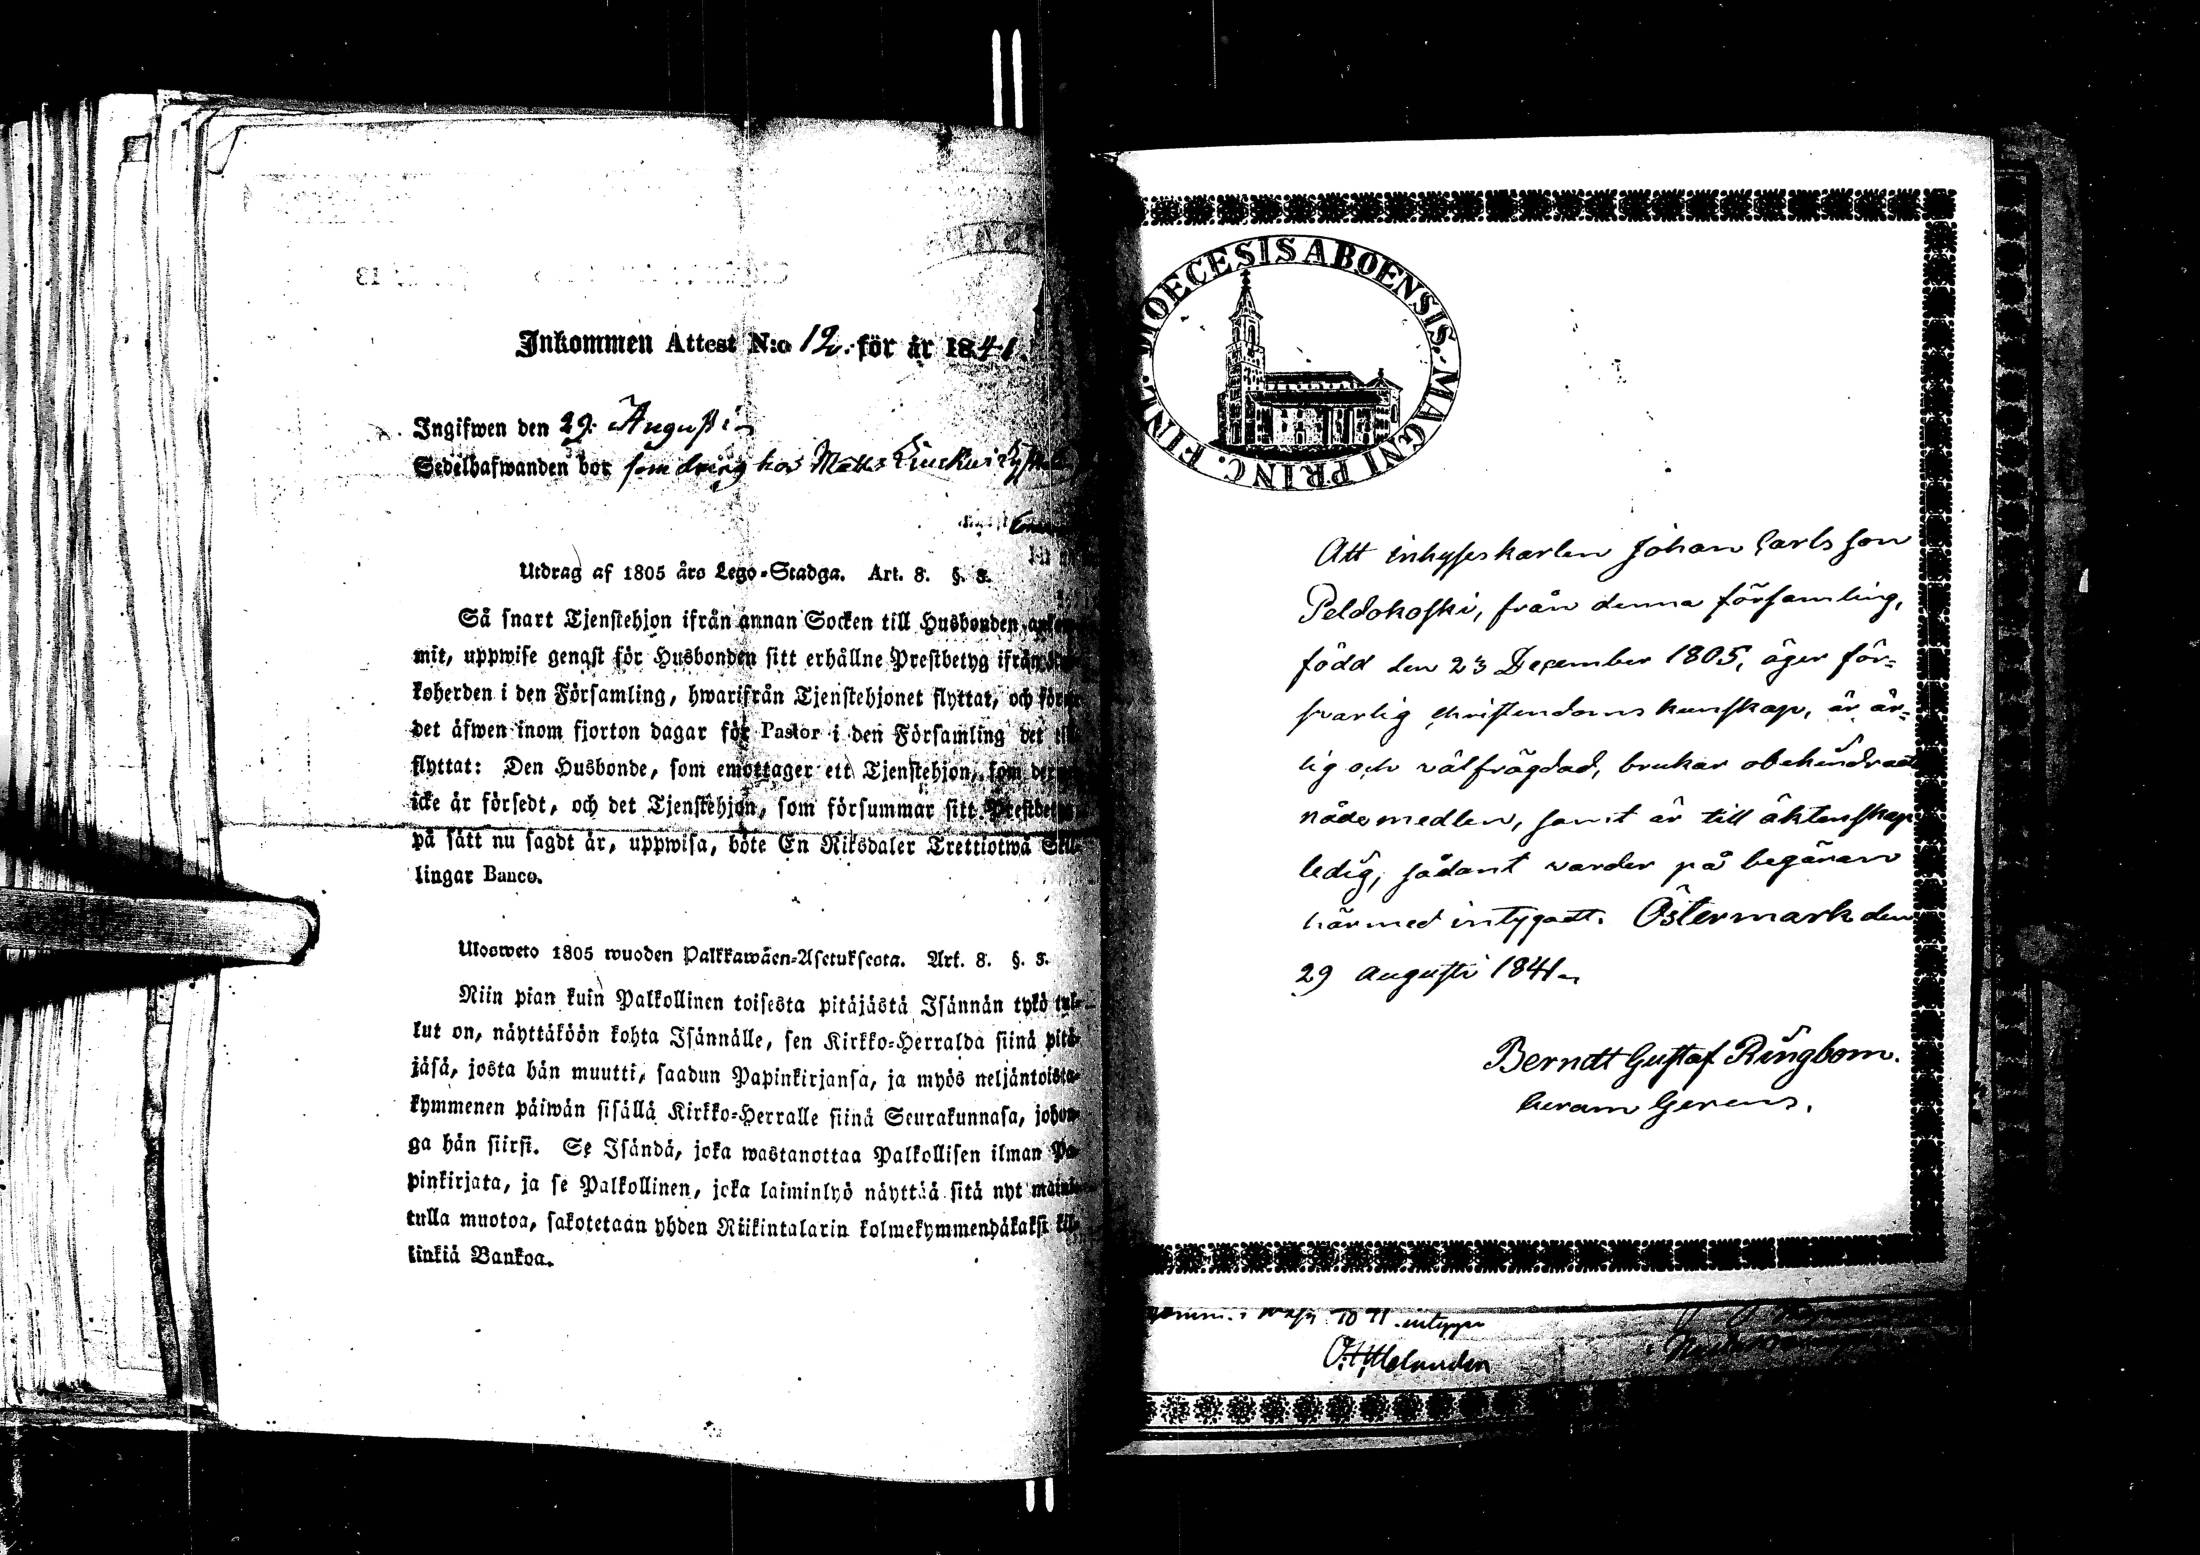 Inkommen Attest N:o 12. för år 1841.
Ingifwen den 29. Augusti
Sedelhafwanden bor som dräng hos Matts
Utdrag af 1805 års Lego-Stadga. Art. 8. §. 3.
Så snart Tjenstehjon ifrån annan Socken till Husbonden
mit, uppwise genast för Husbonden sitt erhållne Prestbetyg ifrån
koherden i den Församling, hwarifrån Tjenstehjonet flyttat, och
det äfwen inom fjorton dagar för Pastor i den Församling det
flyttat: Den Husbonde, som emottager ett Tjenstehjon, som
icke är försedt, och det Tjenstehjon, som försummar sitt
på sätt nu sagdt är, uppwisa, böte En Riksdaler Trettiotwå
lingar Banco.
Ulosweto 1805 wuoden Palkkawäen-Asetuksesta. Art. 8. §. 3.
Niin pian kuin Palkollinen toisesta pitäjästä Isännän tykö tul-
lut on, näyttäköön kohta Isännälle, sen Kirkko-Herralda siinä pitä-
jäsä, josta hän muutti, saadun Papinkirjansa, ja myös neljäntoista-
kymmenen päiwän sisällä Kirkko-Herralle siinä Seurakunnasa, johon-
ga hän siirsi. Se Isändä, joka wastanottaa Palkollisen ilman Pa-
pinkirjata, ja se Palkollinen, joka laiminlyö näyttää sitä nyt
tulla muotoa, sakotetaan yhden Riikintalarin kolmekymmendäkaksi kil-
linkiä Bankoa.
DIOECESIS ABOENSIS. MAGNI PRINC. FINL.
Att inhyseskarlen Johan Carlsson
Peldokoski, från denna församling,
född den 23 December 1805, äger för=
svarlig christendoms kunskap, är är=
lig och välfrägdad, brukar obehindradt
nådemedlen, samt är till äktenskap
ledig, sådant varder på begäran
härmed intygadt. Östermark den
29 Augusti 1841.
Berndt Gustaf Ringbom.